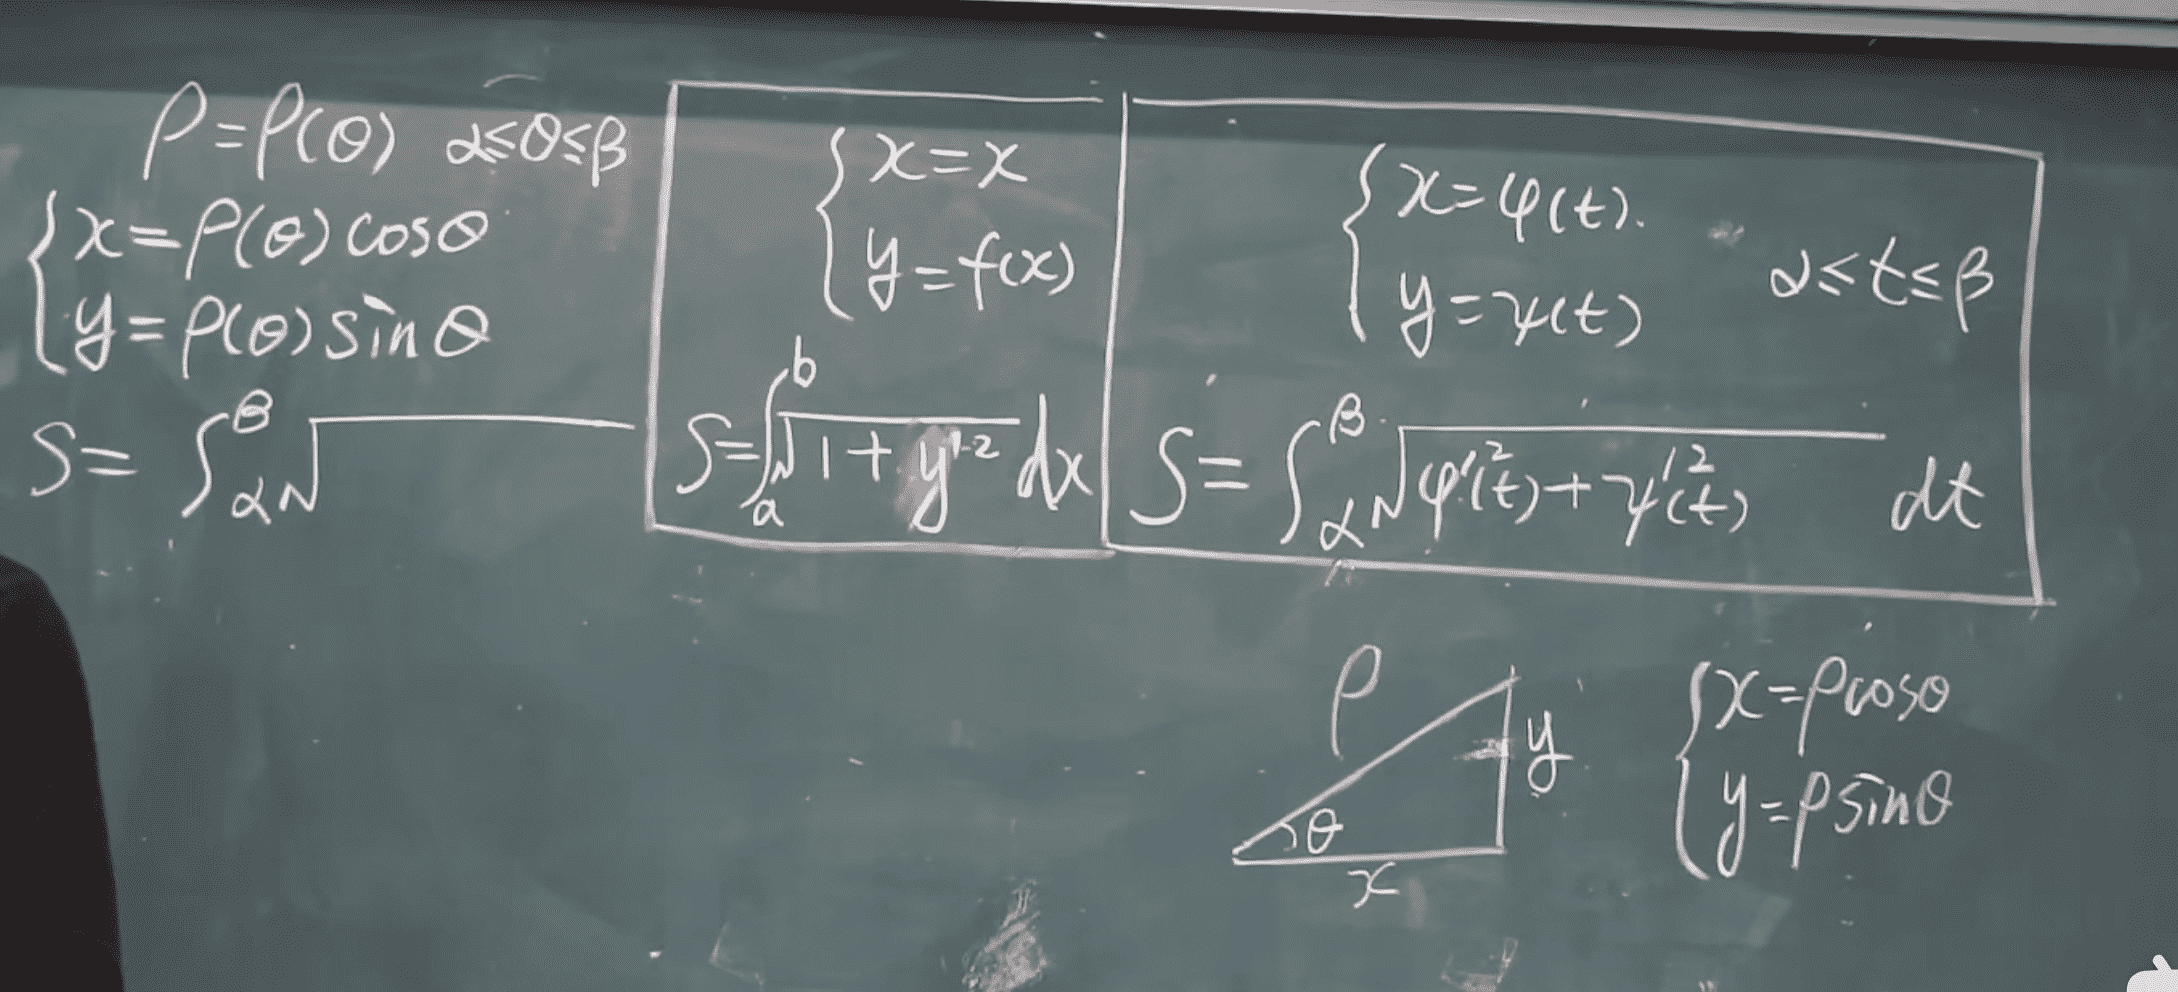 ρ=ρ(θ) α≤θ≤β
{x=ρ(θ)cosθ
{y=ρ(θ)sinθ
S=∫_α^β √
{x=x
{y=f(x)
S=∫_a^b √(1+y'²) dx
{x=φ(t).
{y=ψ(t) α≤t≤β
S=∫_α^β √(φ'²(t)+ψ'²(t)) dt
ρ
y
θ
x
{x=ρcosθ
{y=ρsinθ